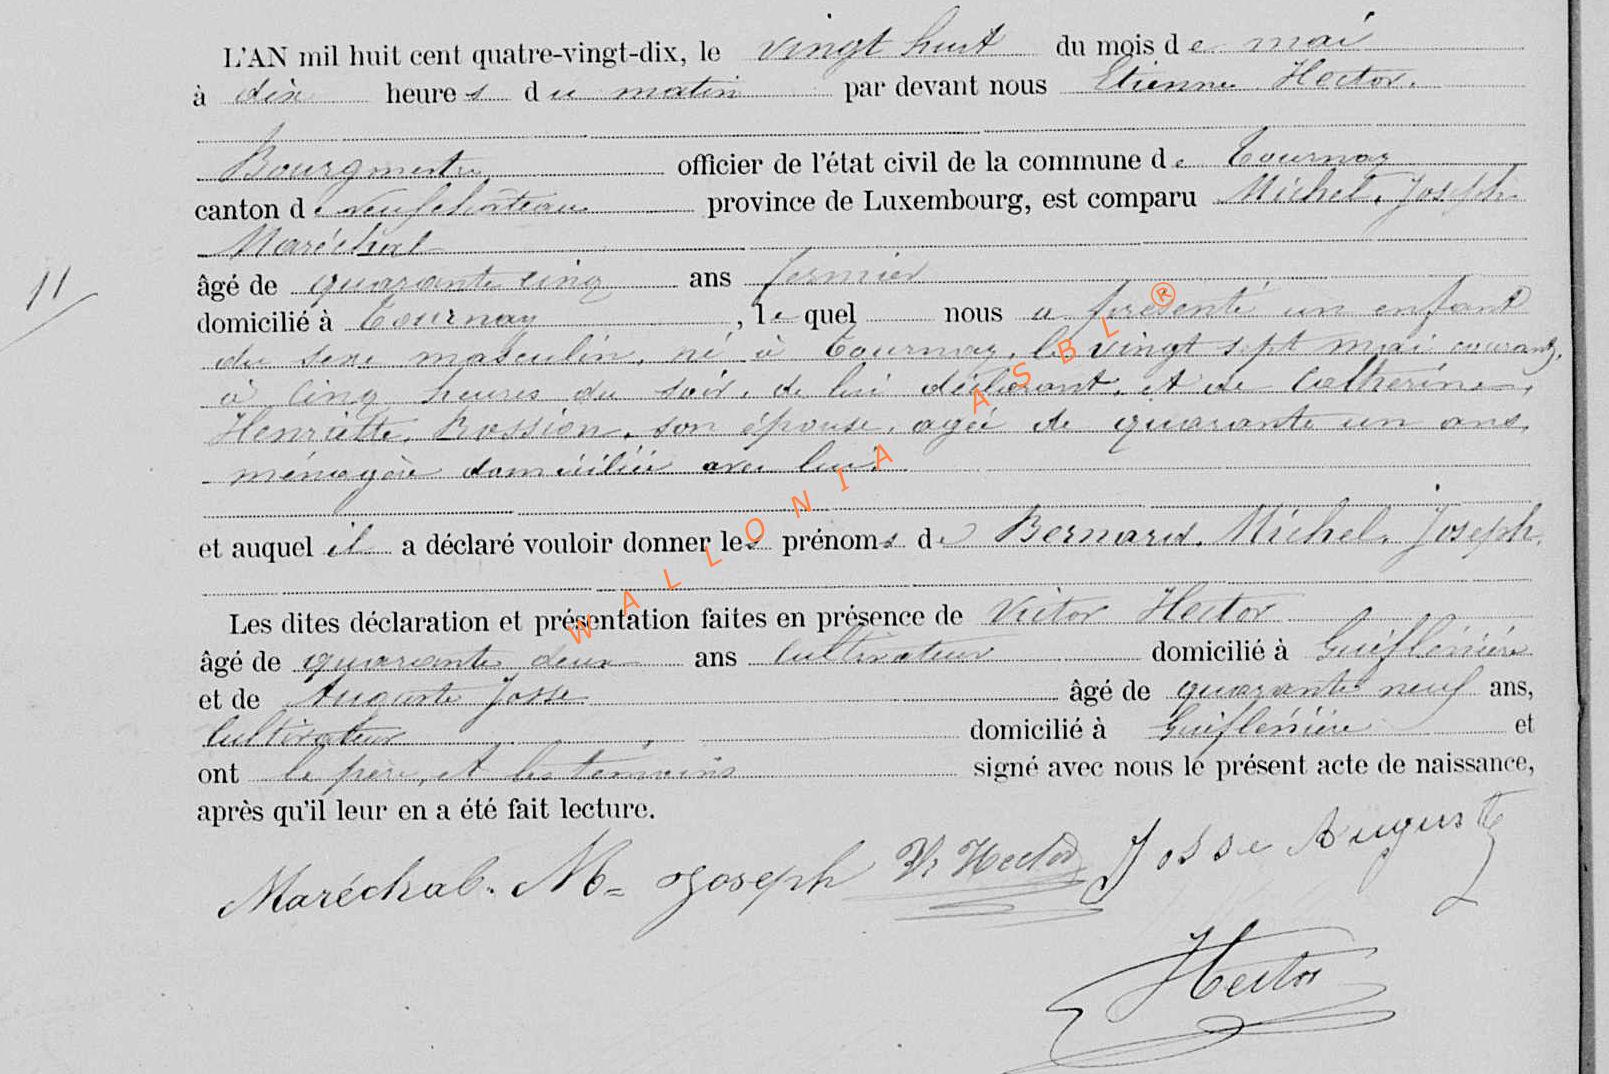 L'AN mil huit cent quatre-vingt-dix, le vingt huit du mois de mai
à dix heures du matin par devant nous Etienne Hector.
Bourgmestre officier de l'état civil de la commune de Tournay
canton de Neufchâteau province de Luxembourg, est comparu Michel, Joseph
Maréchal
11
âgé de quarante cinq ans fermier
domicilié à Tournay, lequel nous a présenté un enfant
du sexe masculin, né à Tournay, le vingt sept mai courant,
à cinq heures du soir, de lui déclarant, et de Catherine,
Henriette, Rossion, son épouse, agée de quarante un ans,
ménagère domiciliée avec lui.
et auquel il a déclaré vouloir donner les prénoms de Bernard, Michel, Joseph.
Les dites déclaration et présentation faites en présence de Victor Hector
âgé de quarante deux ans cultivateur domicilié à
et de Auguste Josse âgé de quarante neuf ans,
Cultivateur domicilié à et
ont le père, et les témoins signé avec nous le présent acte de naissance,
après qu'il leur en a été fait lecture.
Maréchal. M= Joseph Vr Hector Josse Auguste
Hector
WALLONIA ASBL ®